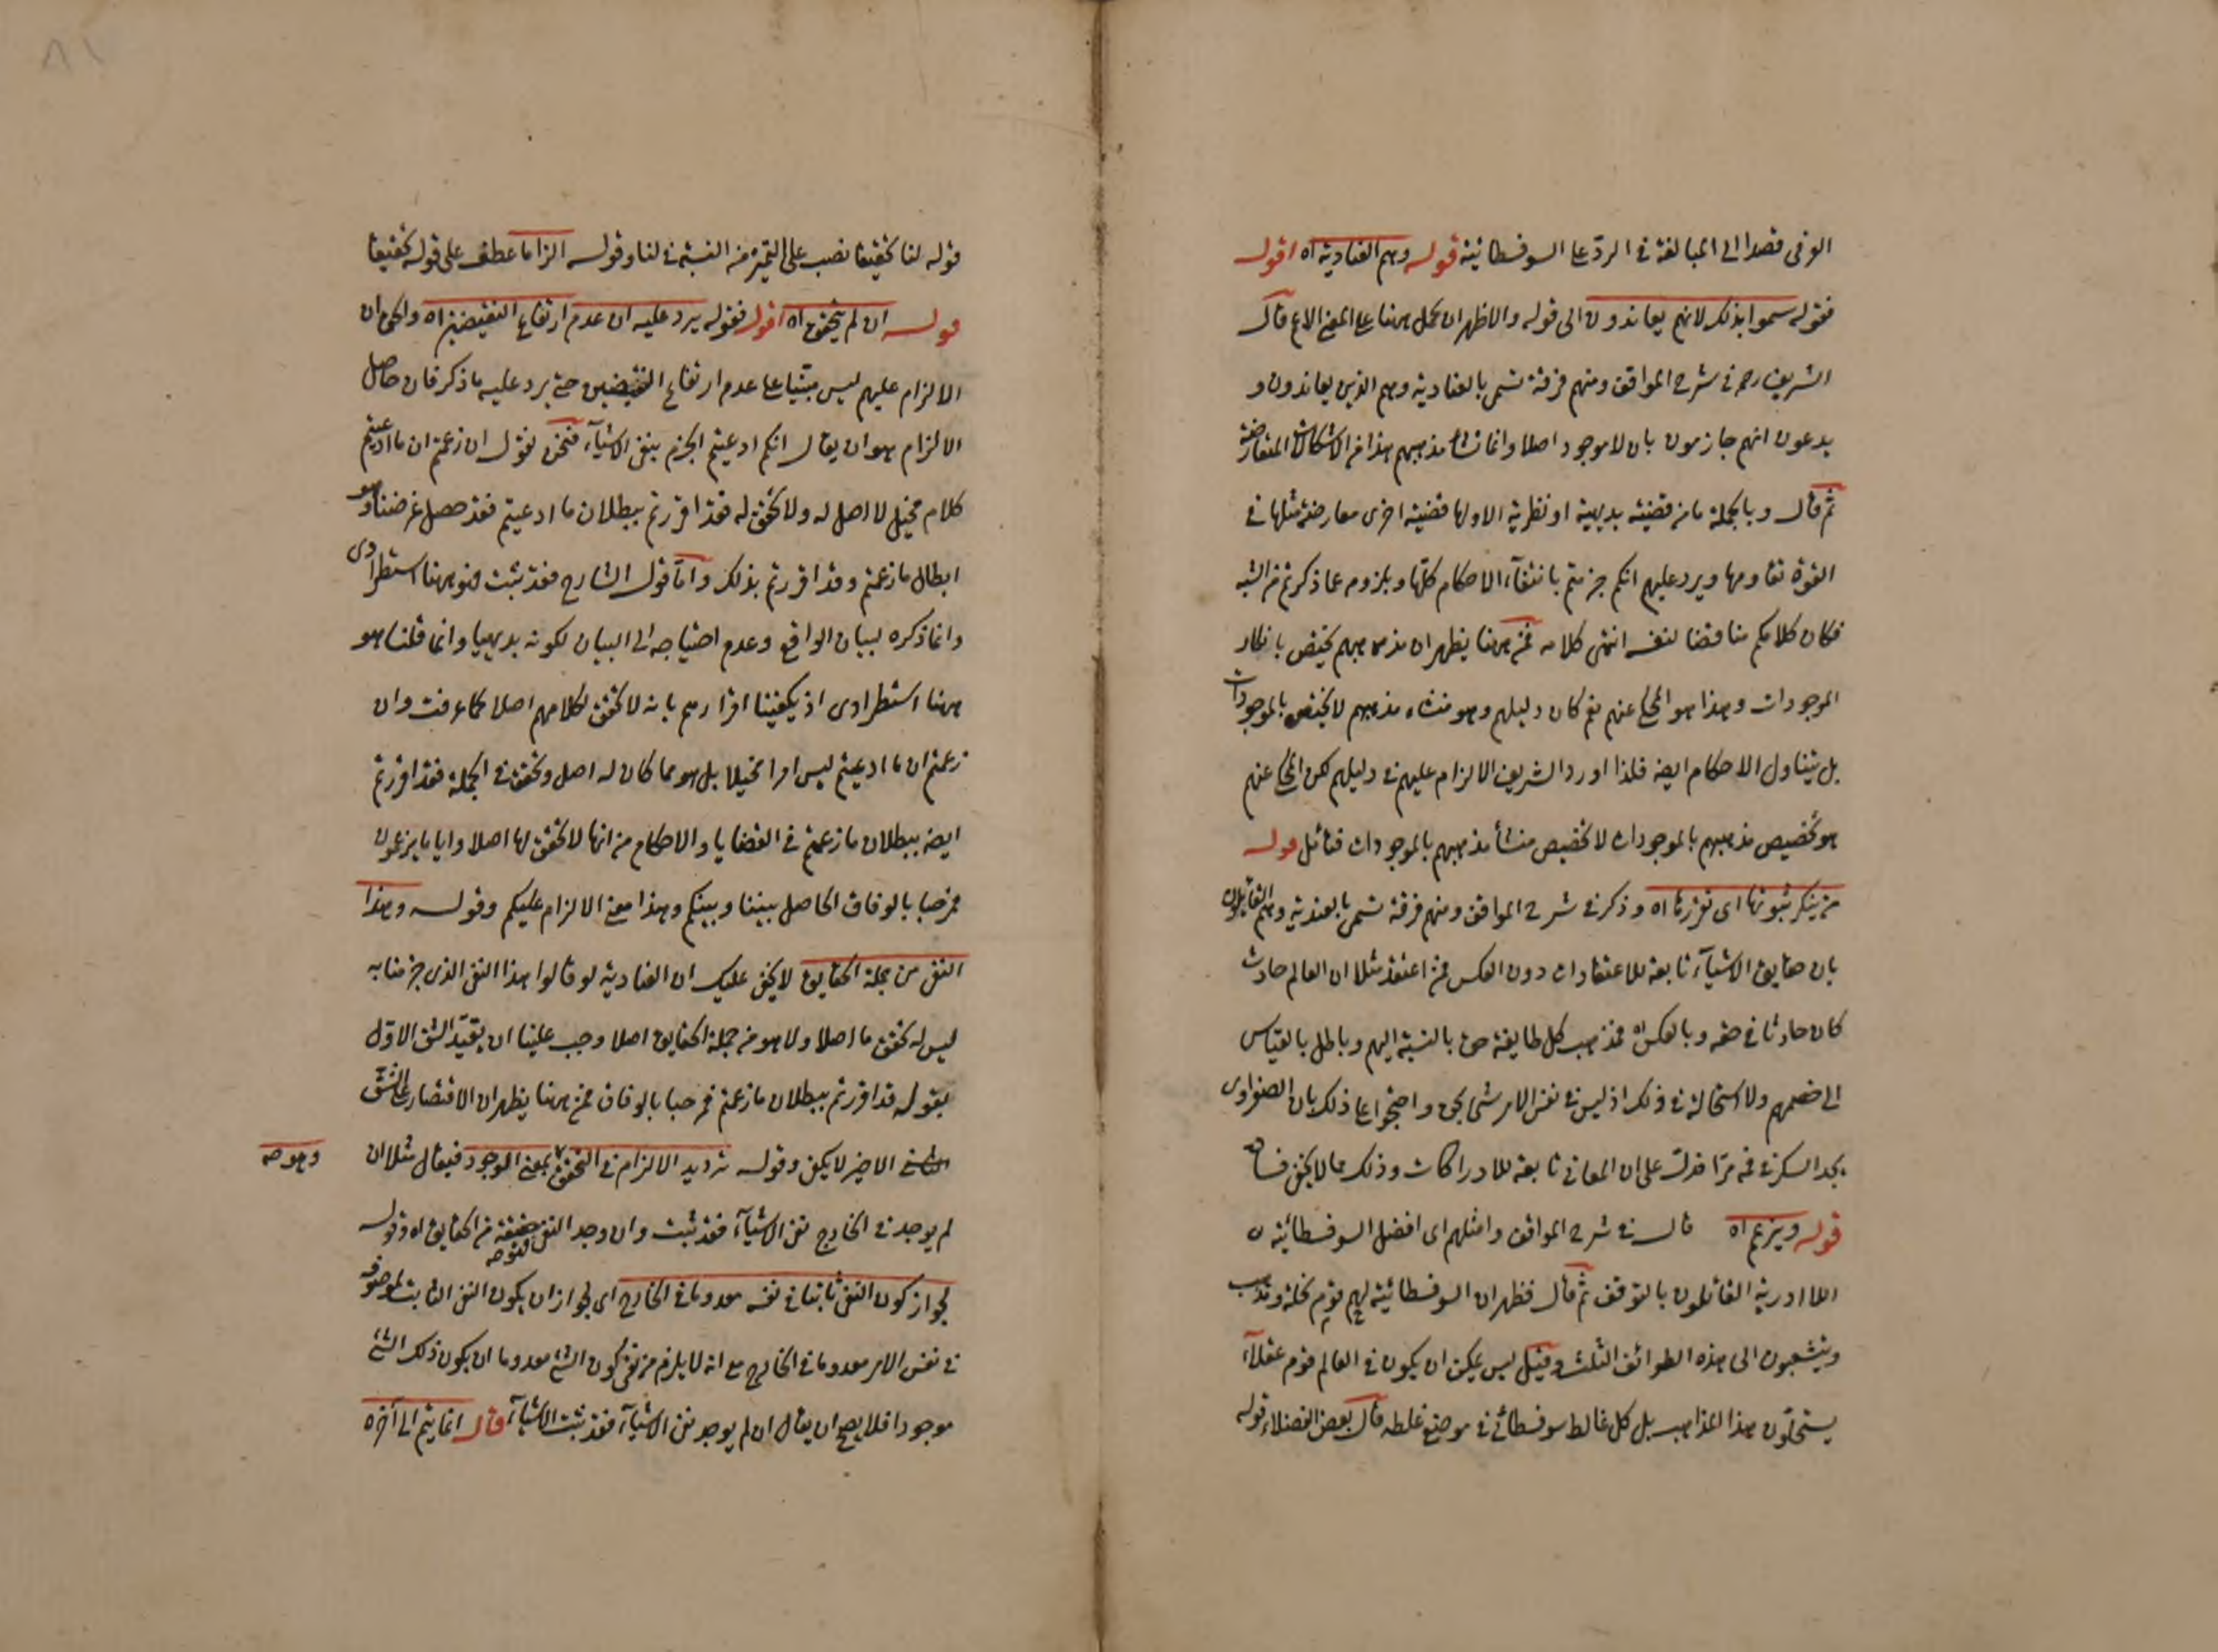 الوفى قصدا الى المبالغة في الرد على السوفسطائية قوله وهم العنادية اه اقول
فقوله سموا بذلك لانهم يعاندون الى قوله والاظهر ان يحمل ههنا على المعنى الاعم قال
الشريف رحمه في شرح المواقف ومنهم فرقة تسمى بالعنادية وهم الذين يعاندون و
يدعون انهم جازمون بان لا موجود اصلا وانما نشأ مذهبهم هذا من الاشكالات المتعارضة
ثم قال وبالجملة ما من قضية بديهية او نظرية الا ولها قضية اخرى معارضة مثلها في
القوة تقاومها ويرد عليهم انكم جزمتم بانتفاء الاحكام كلها وبلزومه عما ذكرتم من الشبه
فكان كلامكم مناقضا لنفسه انتهى كلامه فمن ههنا يظهر ان مذهبهم يختص بانكار
الموجودات وهذا هو المحكي عنهم نعم كان دليلهم وهو منشاء مذهبهم لا يختص بالموجودات
بل يتناول الاحكام ايضه فلذا اورد الشريف الالزام عليهم في دليلهم لكن المحكي عنهم
هو تخصيص مذهبهم بالموجودات لا تخصيص منشأ مذهبهم بالموجودات فتأمل قوله
من ينكر ثبوتها اى تقررها اه وذكر في شرح المواقف ومنهم فرقة تسمى بالعندية وهم القائلون
بان حقايق الاشياء تابعة للاعتقادات دون العكس فمن اعتقد مثلا ان العالم حادث
كان حادثا في حقه وبالعكس فمذهب كل طايفة حق بالنسبة اليهم وباطل بالقياس
الى خصمهم ولا استحالة في ذلك اذ ليس في نفس الامر شئ بحق واحتجوا على ذلك بان الصفراوى
يجد السكر في فمه مرا فدل على ان المعاني تابعة للادراكات وذلك مما لا يخفى فساده
قوله ويزعم اه قال في شرح المواقف وامثلهم اى افضل السوفسطائية
اللاادرية القائلون بالتوقف ثم قال فظهر ان السوفسطائية لهم قوم نحلة ومذهب
ويتشعبون الى هذه الطوائف الثلث وقيل ليس يمكن ان يكون في العالم قوم عقلاء
ينتحلون هذا المذهب بل كل غالط سوفسطائي في موضع غلطه قال بعض الفضلاء قوله
قوله لنا تحقيقا نصب على التميز من النسبة في لنا وقوله الزاما عطف على قوله تحقيقا
قوله ان لم يتحقق اه اقول فقوله يرد عليه ان عدم ارتفاع النقيضين اه والحق ان
الالزام عليهم ليس مبنيا على عدم ارتفاع النقيضين حتى يرد عليه ما ذكر فان حاصل
الالزام هو ان يقال انكم ادعيتم الجزم بنفي الاشياء فنحن نقول ان زعمتم ان ما ادعيتم
كلام مخيل لا اصل له ولا تحقق له فقد اقررتم ببطلان ما ادعيتم فقد حصل غرضنا وهو
ابطال ما زعمتم وقد اقررتم بذلك واما قول الشارح فقد ثبت فهو ههنا استطرادى
وانما ذكره لبيان الواقع وعدم احتياجه الى البيان لكونه بديهيا وانما قلنا هو
ههنا استطرادى اذ يكفينا اقرارهم بانه لا تحقق لكلامهم اصلا كما عرفت وان
زعمتم ان ما ادعيتم ليس امرا مخيلا بل هو مما كان له اصل وتحقق في الجملة فقد اقررتم
ايضه ببطلان ما زعمتم في القضايا والاحكام من انها لا تحقق لها اصلا وايا ما يزعمون
فمرحبا بالوفاق الحاصل بيننا وبينكم وهذا معنى الالزام عليكم وقوله وهذا
النفي من جملة الحقايق لا يخفى عليك ان العنادية لو قالوا هذا النفي الذى جزمنا به
ليس له تحقق ما اصلا ولا هو من جملة الحقايق اصلا وجب علينا ان يقيد الشق الاول
بقوله قد اقررتم ببطلان ما زعمتم فمرحبا بالوفاق فمن ههنا يظهر ان الاقتصار على الشق
الاخير لا يكفي وقوله ترديد الالزام في التحقق بمعنى الوجود فيقال مثلا ان
وهو صه
لم يوجد في الخارج نفى الاشياء فقد ثبت وان وجد النفي حقيقة من الحقايق اه وقوله
لجواز كون النفي ثابتا في نفسه معدوما في الخارج اى لجواز ان يكون النفي الثابت لموصوفه
في نفس الامر معدوما في الخارج مع انه لا يلزم من نفى كون الشئ معدوما ان يكون ذلك الشئ
موجودا فلا يصح ان يقال ان لم يوجد نفى الاشياء فقد ثبت الاشياء قال انما يتم الى آخره